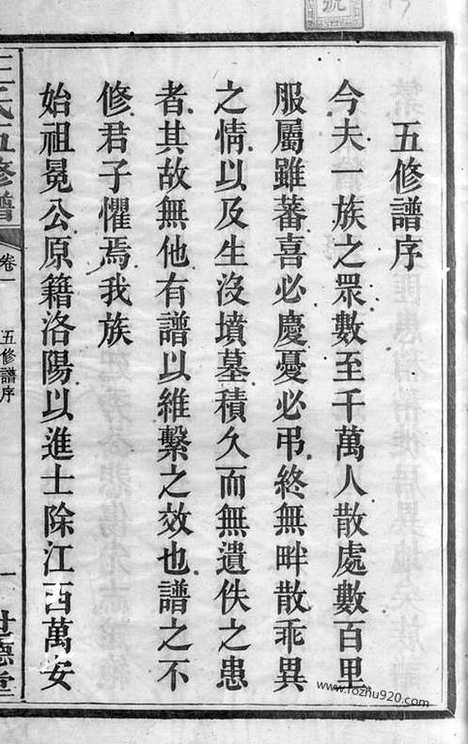 五修譜序
今夫一族之眾數至千萬人散處數百里
服屬雖蕃喜必慶憂必弔終無畔散乖異
之情以及生沒墳墓積久而無遺佚之患
者其故無他有譜以維繫之效也譜之不
修君子懼焉我族
始祖冕公原籍洛陽以進士除江西萬安
王氏五修譜
卷一
五修譜序
一
世德堂
號
www.fozhu920.com